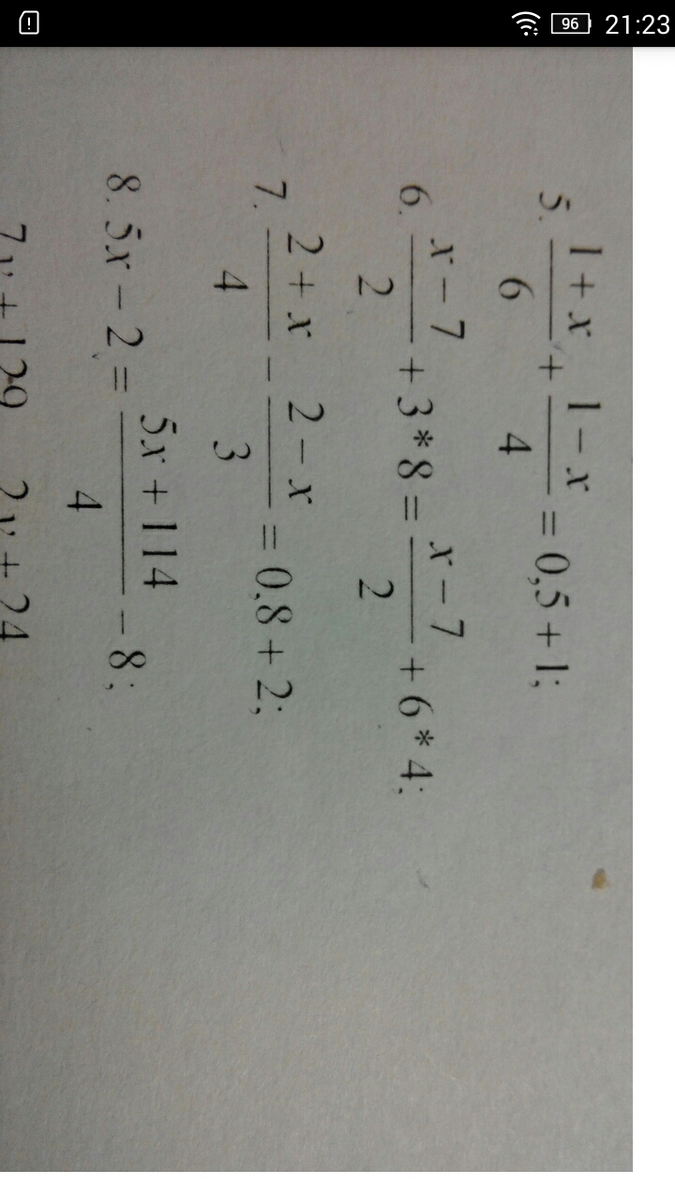 96 21:23
5. \frac{1+x}{6} + \frac{1-x}{4} = 0,5 + 1;
6. \frac{x-7}{2} + 3*8 = \frac{x-7}{2} + 6*4;
7. \frac{2+x}{4} - \frac{2-x}{3} = 0,8 + 2;
8. 5x - 2 = \frac{5x+114}{4} - 8;